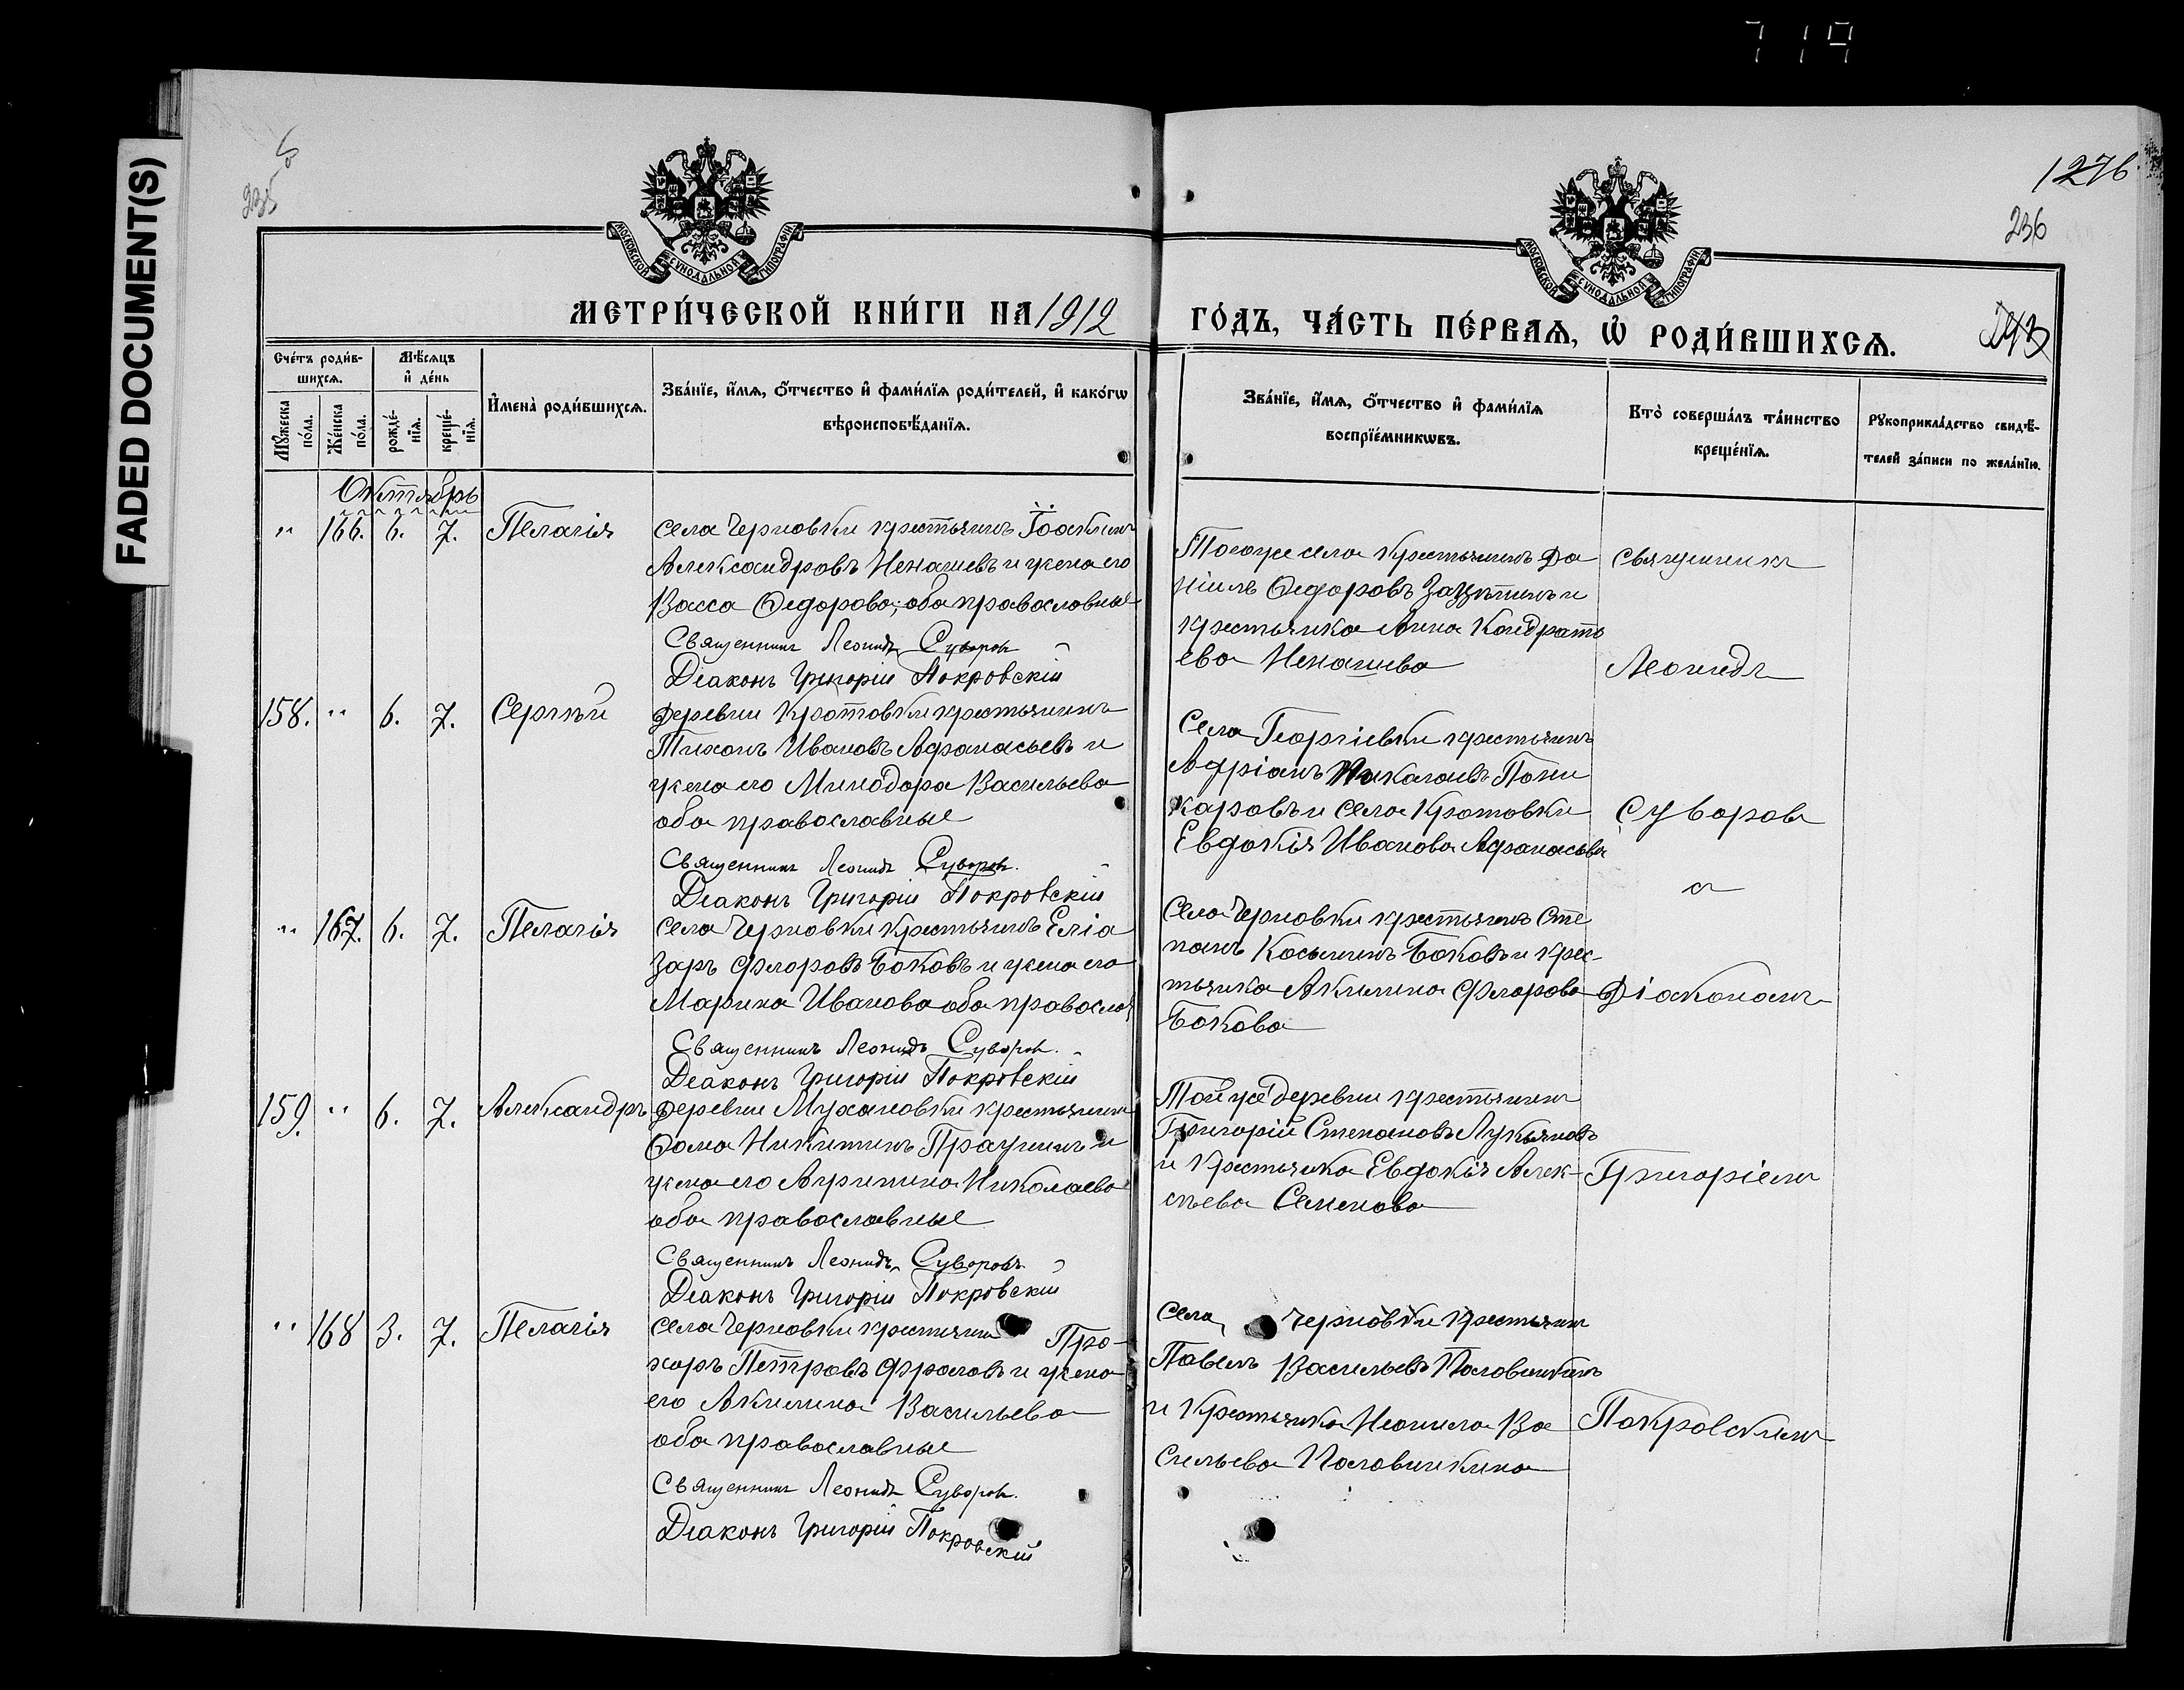 719
FADED DOCUMENT(S)
235
1276
236
МОСКОВСКОЙ СѴНОДАЛЬНОЙ ТИПОГРАФІИ
МОСКОВСКОЙ СѴНОДАЛЬНОЙ ТИПОГРАФІИ
МЕТРИ́ЧЕСКОЙ КНИ́ГИ НА 1912
ГО́ДЪ, ЧА́СТЬ ПЕ́РВАѦ, Ѡ РОДИ́ВШИХСѦ.
Сче́тъ роди́в-
шихсѧ.
Мѣ́сѧцъ
и҆ де́нь
Мꙋ́жеска
по́ла.
Же́нска
по́ла.
рожде́-
нїѧ.
креще́-
нїѧ.
И҆мена̀ роди́вшихсѧ.
Зва́нїе, и҆́мѧ, о҆́тчество и҆ фами́лїѧ роди́телей, и҆ како́гѡ
вѣроисповѣ́данїѧ.
Зва́нїе, и҆́мѧ, о҆́тчество и҆ фами́лїѧ
воспрїе́мникѡвъ.
Кто̀ соверша́лъ та́инство
креще́нїѧ.
Рꙋкоприкла́дство свидѣ́-
телей за́писи по жела́нїю.
Октябрь
" 166. 6. 7. Пелагія
села Черновки крестьянинъ Іоакимъ
Александровъ Ненашевъ и жена его
Васса Ѳедорова, оба православные
Священникъ Леонидъ Суворовъ
Діаконъ Григорій Покровскій
Тогоже села крестьянинъ Да
ніилъ Ѳедоровъ и
крестьянка Анна Кондрать
ева Ненашева
Священникъ
Леонидъ
158. " 6. 7. Сергѣй
деревни Кротовки крестьянинъ
Тихонъ Ивановъ Афанасьевъ и
жена его Минодора Васильева
оба православные
Священникъ Леонидъ Суворовъ.
Діаконъ Григорій Покровскій
Села Георгіевки крестьянинъ
Адріанъ Николаевъ Пони
каровъ и села Кротовки
Евдокія Иванова Афанасьева
Суворовъ
съ
" 167. 6. 7. Пелагія
села Черновки крестьянинъ Еліа
заръ Флоровъ Боковъ и жена его
Марина Иванова оба православ
Священникъ Леонидъ Суворовъ.
Діаконъ Григорій Покровскій
Села Черновки крестьянинъ Сте
панъ Косьминъ Боковъ и крес-
тьянка Акилина Флорова
Бокова
Діакономъ
159. " 6. 7. Александръ
деревни Мухановки крестьянинъ
Ѳома Никитинъ и
жена его Агрипина Николаева
оба православные
Священникъ Леонидъ Суворовъ
Діаконъ Григорій Покровскій
Той же деревни крестьянинъ
Григорій Степановъ Лукьяновъ
и крестьянка Евдокія Алек-
сѣева Семенова
Григоріемъ
" 168 3. 7. Пелагія
села Черновки крестьянинъ Про-
хоръ Петровъ Фроловъ и жена
его Акилина Васильева
оба православные
Священникъ Леонидъ Суворовъ.
Діаконъ Григорій Покровскій
села Черновки крестьянинъ
Павелъ Васильевъ Половинкинъ
и крестьянка Неонила Ва
сильева Половинкина
Покровскимъ